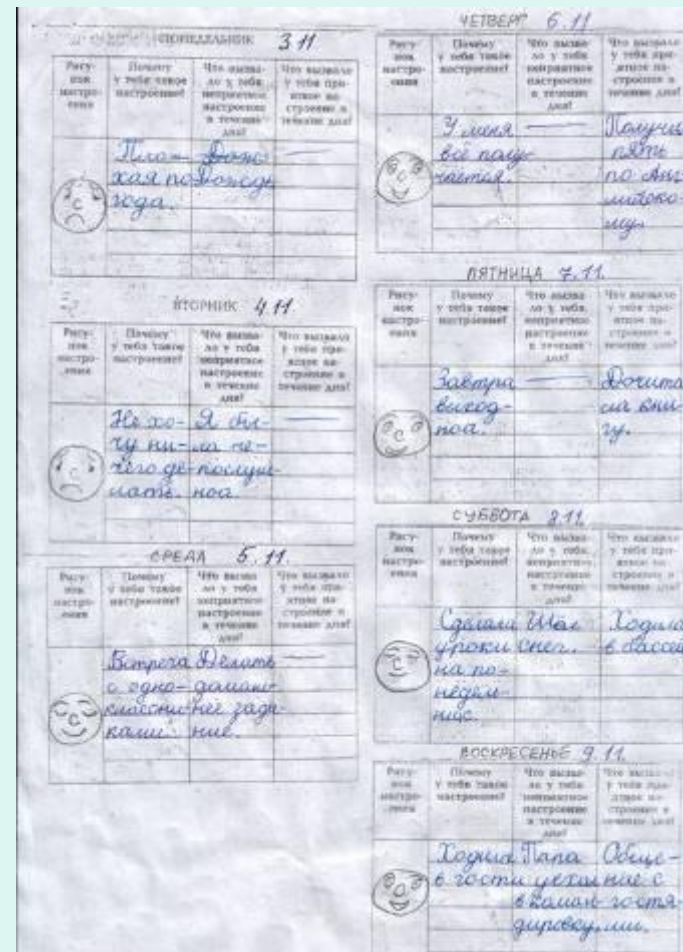 ПОНЕДЕЛЬНИК 3.11
Рису-
нок
настро-
ения
Почему
у тебя такое
настроение?
Что вызва-
ло у тебя
неприятное
настроение
в течение
дня?
Что вызвало
у тебя при-
ятное на-
строение в
течение дня?
Плохая по-
года.
Дождь
—
ВТОРНИК 4.11
Рису-
нок
настро-
ения
Почему
у тебя такое
настроение?
Что вызва-
ло у тебя
неприятное
настроение
в течение
дня?
Что вызвало
у тебя при-
ятное на-
строение в
течение дня?
Не хо-
чу ни-
чего де-
лать.
Я бы-
ла не-
послуш-
ноа.
—
СРЕДА 5.11.
Рису-
нок
настро-
ения
Почему
у тебя такое
настроение?
Что вызва-
ло у тебя
неприятное
настроение
в течение
дня?
Что вызвало
у тебя при-
ятное на-
строение в
течение дня?
Встреча
с одно-
классни-
ками.
Делать
домаш-
нее зада-
ние.
—
ЧЕТВЕРГ 6.11
Рису-
нок
настро-
ения
Почему
у тебя такое
настроение?
Что вызва-
ло у тебя
неприятное
настроение
в течение
дня?
Что вызвало
у тебя при-
ятное на-
строение в
течение дня?
У меня
всё полу-
чается.
—
Получи
пять
по Анг
лийско-
му.
ПЯТНИЦА 7.11.
Рису-
нок
настро-
ения
Почему
у тебя такое
настроение?
Что вызва-
ло у тебя
неприятное
настроение
в течение
дня?
Что вызвало
у тебя при-
ятное на-
строение в
течение дня?
Завтра
выход-
ноа.
—
Дочита
ла кни-
гу.
СУББОТА 8.11.
Рису-
нок
настро-
ения
Почему
у тебя такое
настроение?
Что вызва-
ло у тебя
неприятное
настроение
в течение
дня?
Что вызвало
у тебя при-
ятное на-
строение в
течение дня?
Сделала
уроки
на по-
недель-
ник.
Шёл
снег.
Ходила
в бассей
ВОСКРЕСЕНЬЕ 9.11.
Рису-
нок
настро-
ения
Почему
у тебя такое
настроение?
Что вызва-
ло у тебя
неприятное
настроение
в течение
дня?
Что вызвало
у тебя при-
ятное на-
строение в
течение дня?
Ходила
в гости
Папа
уехал
в коман-
дировку.
Обще-
ние с
гостя-
ми.